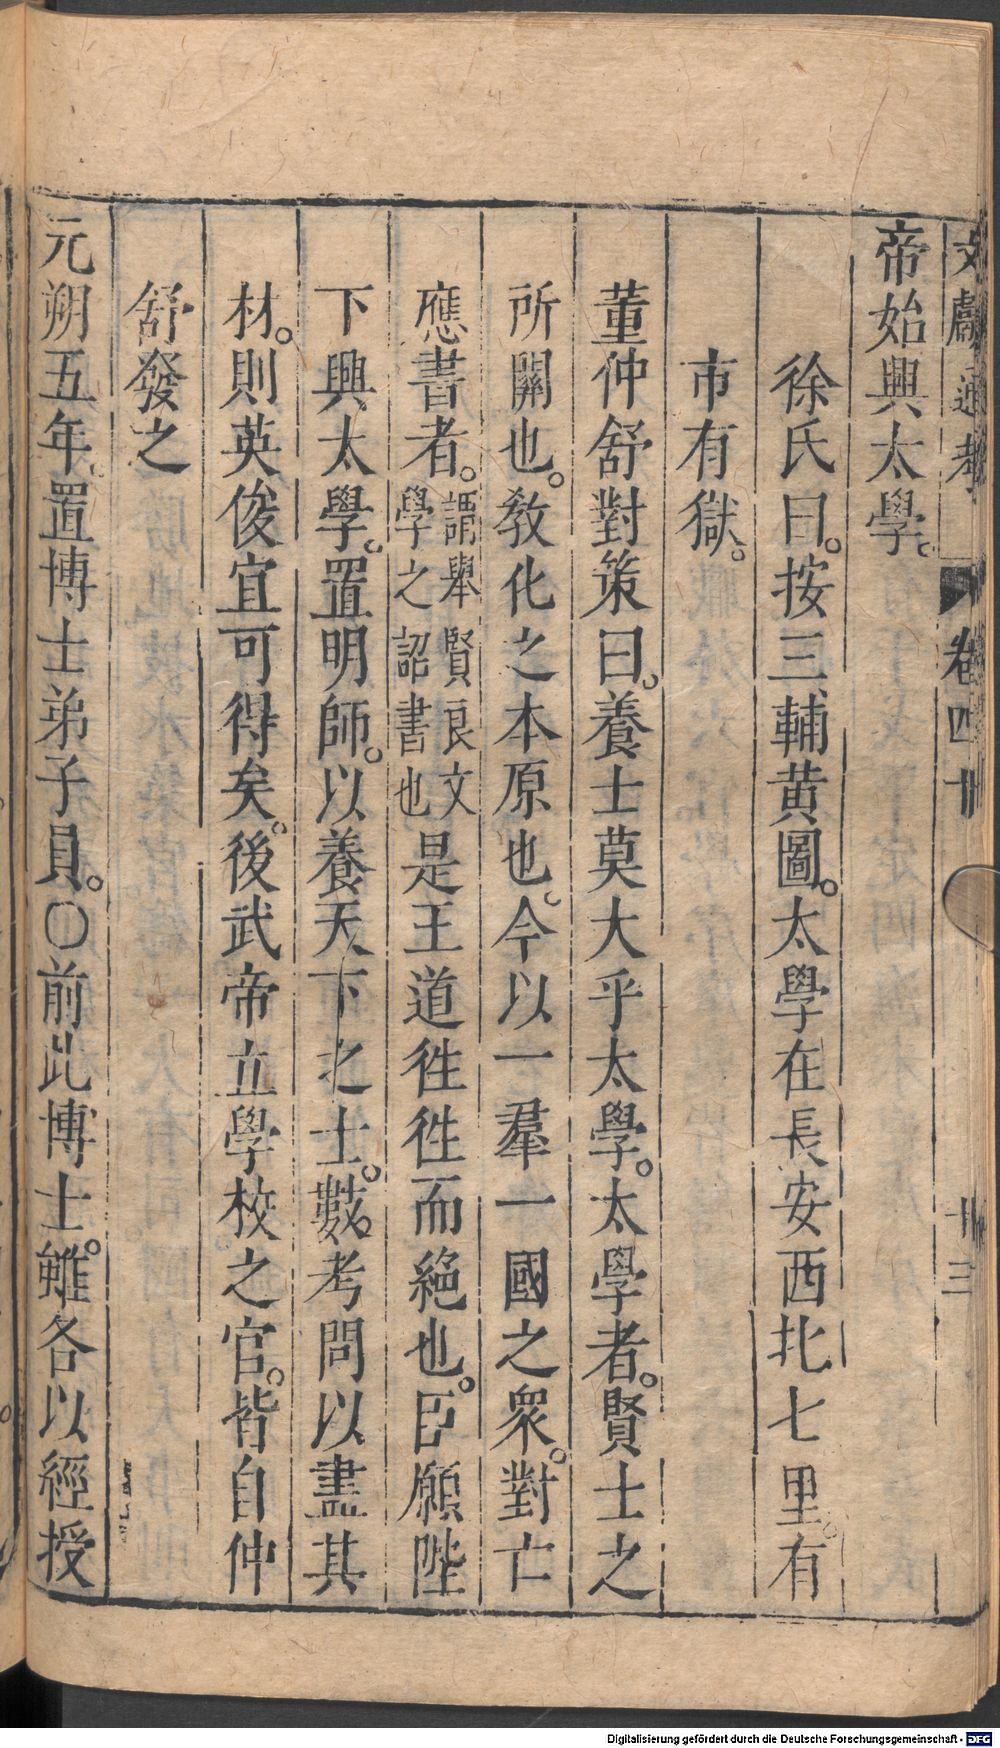 文獻通考 卷四十 十三
帝始興太學。
徐氏曰。按三輔黄圖。太學在長安西北七里。有
市有獄。
董仲舒對策曰。養士莫大乎太學。太學者。賢士之
所關也。敎化之本原也。今以一郡一國之衆。對亡
應書者。謂舉賢良文學之詔書也是王道徃徃而絶也。臣願陛
下興太學。置明師。以養天下之士。數考問以盡其
材。則英俊宜可得矣。後武帝立學校之官。皆自仲
舒發之
元朔五年。置博士弟子員。〇前此博士。雖各以經授
Digitalisierung gefördert durch die Deutsche Forschungsgemeinschaft - DFG